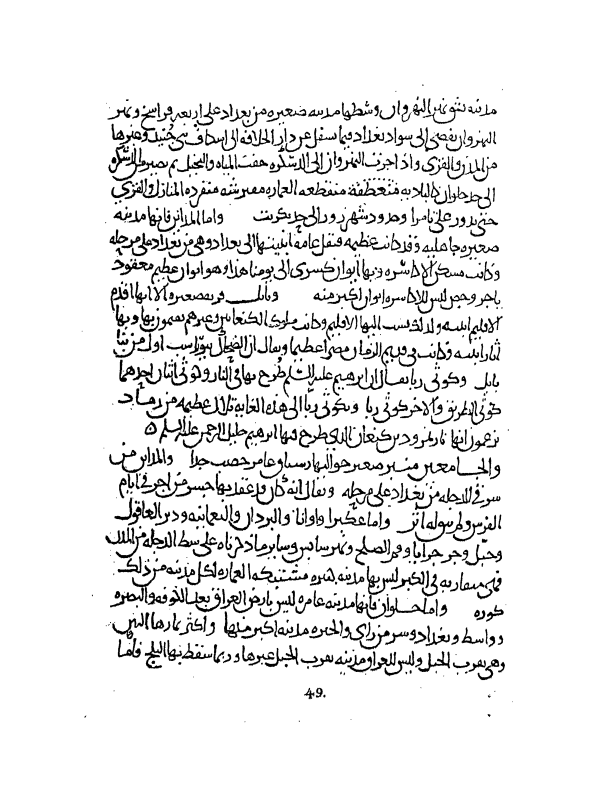 مدينة يشق نهر النهروان وسطها مدينة صغيرة من بغداد على اربعة فراسخ ونهر
النهروان يفضى الى سواد بغداد فيما سفل عن دار الخلافة الى اسكاف بنى جنيد وغيرها
من المدن والقرى واذا جزت النهروان الى الدسكرة خفت المياه والنخيل ثم يصير من الدسكرة
الى حد حلوان كالبادية منقطعة العمارة مفترشة منفردة المنازل والقرى
حتى يدور على تامرا وحدود شهرزور الى حد تكريت واما المداين فانها مدينة
صغيرة جاهلية وقد كانت عظيمة فنقل عامة ابنيتها الى بغداد وهى من بغداد على مرحلة
وكانت مسكن الاكاسرة وبها ايوان كسرى الى يومنا هذا وهو ايوان عظيم معقود
باجر وجص ليس للاكاسرة ايوان اكبر منه وبابل قرية صغيرة الا انها اقدم
الاقليم ابنية ولذلك ينسب اليها الاقليم وكانت ملوك الكنعانيين وغيرهم يقيمون بها وبها
اثار ابنية وكانت فى قديم الزمان مصرا عظيما ويقال ان الضحاك بيوراسب اول من بنا
بابل وكوثى ربا يقال ان ابرهيم عليه السلم طرح بها فى النار وكوثى اثنان احدهما
كوثى الطريق والاخر كوثى ربا وبكوثى ربا الى هذه الغاية تلال عظيمة من رماد
يزعمون انها نار نمرود بن كنعان الذى طرح فيها ابرهيم خليل الرحمن عليه السلم
والجامعين منبر صغير حواليها رستاق عامر خصب جدا والمداين من
شرقى الدجلة من بغداد على مرحلة ويقال انه كان قد عقد بها جسر من اجر فى ايام
الفرس ولم نر له اثر واما عكبرا واوانا والبردان والنعمانية ودير العاقول
وجبل وجرجرايا وفم الصلح ونهر سابس وساير ما ذكرناه على شط الدجلة من المدن
فهى متقاربة فى الكبر ليس بها مدينة كبيرة مشتبكة العمارة لكل مدينة من ذلك
كورة واما حلوان فانها مدينة عامرة ليس بارض العراق بعد الكوفة والبصرة
وواسط وبغداد وسر من راى والحيرة مدينة اكبر منها واكثر ثمارها التين
وهى بقرب الجبل وليس للعراق مدينة بقرب الجبل غيرها وربما سقط بها الثلج فاما
49.